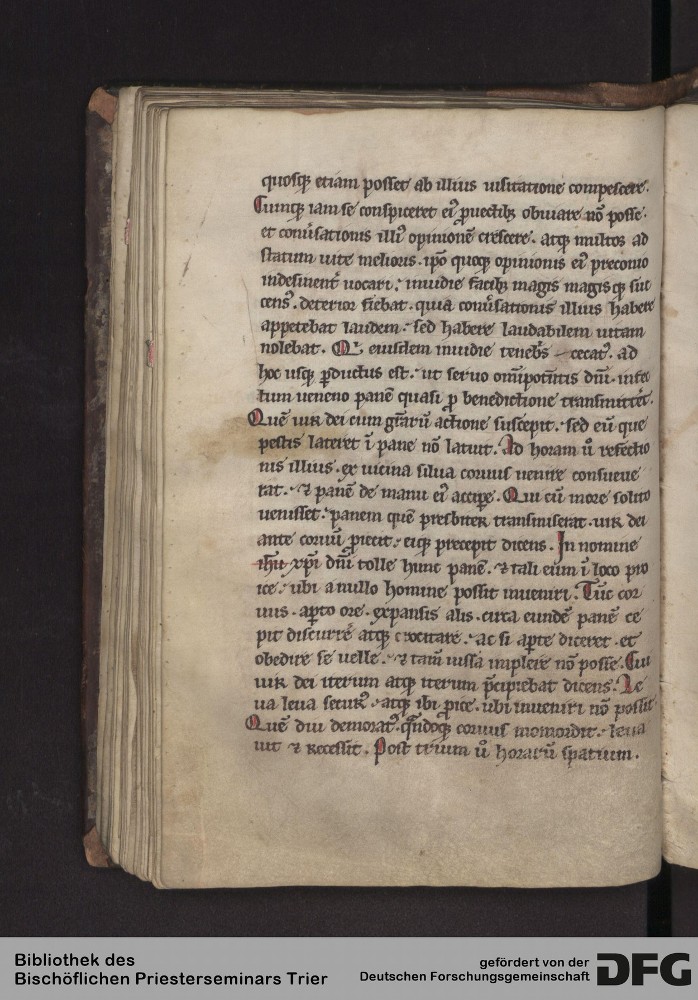 quosq; etiam posset ab illius uisitatione compescere.
Cumq; iam se conspiceret ei9 puectib; obuiare nō posse.
et conu'sationis illi9 opinionē crescere. atq; multos ad
statum uite melioris. ipō quoq; opinionis ei9 preconio
indesinent' uocari. inuidie facib; magis magisq; suc
cens9. deterior fiebat. quia conu'sationis illius habere
appetebat laudem. sed habere laudabilem uitam
nolebat. Qi eiusdem inuidie tenebs cecat9. ad
hoc usq; pductus est. ut seruo omīpotētis dnī. infec
tum ueneno panē quasi p benedictione transmitteret.
Quē uir dei cum grarū actione suscepit. sed eū que
pestis lateret ī pane nō latuit. Ad horam ů refectio
nis illius. ex uicina silua coruus uenire consueue
rat. & panē de manu ei9 accipe. Qui cū more solito
uenisset. panem quē presbiter transmiserat. uir dei
ante coruū piecit. eiq; precepit dicens. In nomine
ihu xpi dnī tolle hunc panē. & tali eum ī loco pro
ice. ubi a nullo homine possit inueniri. Tūc cor
uus. apto ore. expansis alis. circa eundē panē ce
pit discurrē atq; crocitare. ac si apte diceret. et
obedire se uelle. & tam iussa implere nō posse. Cui
uir dei iterum atq; iterum pcipiebat dicens. Le
ua leua secur9. atq; ibi pice. ubi inueniri nō possit
Quē diu demorat9. qndoq; coruus momordit. leua
uit & recessit. Post trium ů horarū spatium.
Bibliothek des
Bischöflichen Priesterseminars Trier
gefördert von der
Deutschen Forschungsgemeinschaft
DFG